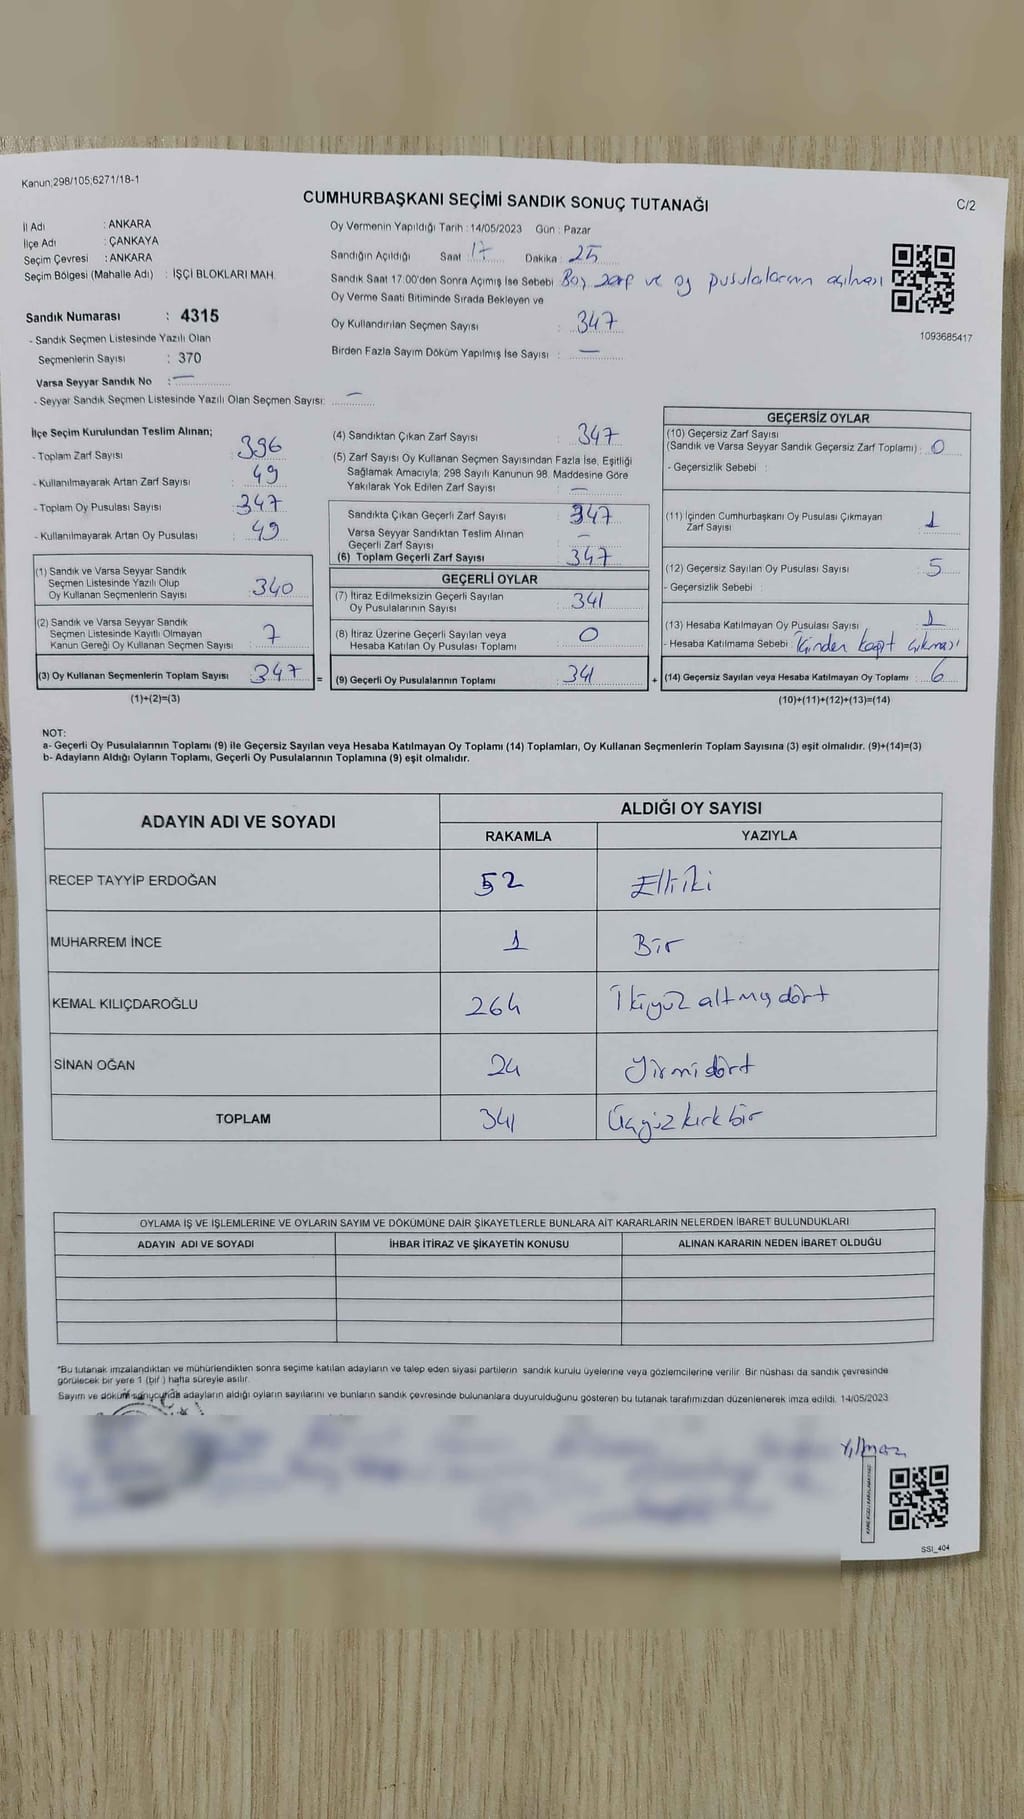 Kanun;298/105;6271/18-1
CUMHURBAŞKANI SEÇİMİ SANDIK SONUÇ TUTANAĞI
C/2
İl Adı : ANKARA
İlçe Adı : ÇANKAYA
Seçim Çevresi : ANKARA
Seçim Bölgesi (Mahalle Adı) : İŞÇİ BLOKLARI MAH.
Sandık Numarası : 4315
- Sandık Seçmen Listesinde Yazılı Olan
Seçmenlerin Sayısı : 370
Varsa Seyyar Sandık No : —
- Seyyar Sandık Seçmen Listesinde Yazılı Olan Seçmen Sayısı: —
Oy Vermenin Yapıldığı Tarih : 14/05/2023 Gün : Pazar
Sandığın Açıldığı Saat : 17 Dakika : 25
Sandık Saat 17:00'den Sonra Açımış İse Sebebi : Boş zarf ve oy pusulalarının açılması
Oy Verme Saati Bitiminde Sırada Bekleyen ve
Oy Kullandırılan Seçmen Sayısı : 347
Birden Fazla Sayım Döküm Yapılmış İse Sayısı : —
1093685417
İlçe Seçim Kurulundan Teslim Alınan;
- Toplam Zarf Sayısı : 396
- Kullanılmayarak Artan Zarf Sayısı : 49
- Toplam Oy Pusulası Sayısı : 347
- Kullanılmayarak Artan Oy Pusulası : 49
(1) Sandık ve Varsa Seyyar Sandık
Seçmen Listesinde Yazılı Olup
Oy Kullanan Seçmenlerin Sayısı : 340
(2) Sandık ve Varsa Seyyar Sandık
Seçmen Listesinde Kayıtlı Olmayan
Kanun Gereği Oy Kullanan Seçmen Sayısı : 7
(3) Oy Kullanan Seçmenlerin Toplam Sayısı : 347 =
(1)+(2)=(3)
(4) Sandıktan Çıkan Zarf Sayısı : 347
(5) Zarf Sayısı Oy Kullanan Seçmen Sayısından Fazla İse, Eşitliği
Sağlamak Amacıyla, 298 Sayılı Kanunun 98. Maddesine Göre
Yakılarak Yok Edilen Zarf Sayısı : —
Sandıkta Çıkan Geçerli Zarf Sayısı : 347
Varsa Seyyar Sandıktan Teslim Alınan
Geçerli Zarf Sayısı : —
(6) Toplam Geçerli Zarf Sayısı : 347
GEÇERLİ OYLAR
(7) İtiraz Edilmeksizin Geçerli Sayılan
Oy Pusulalarının Sayısı : 341
(8) İtiraz Üzerine Geçerli Sayılan veya
Hesaba Katılan Oy Pusulası Toplamı : 0
(9) Geçerli Oy Pusulalarının Toplamı : 341 +
GEÇERSİZ OYLAR
(10) Geçersiz Zarf Sayısı
(Sandık ve Varsa Seyyar Sandık Geçersiz Zarf Toplamı) : 0
- Geçersizlik Sebebi :
(11) İçinden Cumhurbaşkanı Oy Pusulası Çıkmayan
Zarf Sayısı : 1
(12) Geçersiz Sayılan Oy Pusulası Sayısı : 5
- Geçersizlik Sebebi :
(13) Hesaba Katılmayan Oy Pusulası Sayısı : 1
- Hesaba Katılmama Sebebi : İçinden kağıt çıkması
(14) Geçersiz Sayılan veya Hesaba Katılmayan Oy Toplamı : 6
(10)+(11)+(12)+(13)=(14)
NOT:
a- Geçerli Oy Pusulalarının Toplamı (9) ile Geçersiz Sayılan veya Hesaba Katılmayan Oy Toplamı (14) Toplamları, Oy Kullanan Seçmenlerin Toplam Sayısına (3) eşit olmalıdır. (9)+(14)=(3)
b- Adayların Aldığı Oyların Toplamı, Geçerli Oy Pusulalarının Toplamına (9) eşit olmalıdır.
ADAYIN ADI VE SOYADI
ALDIĞI OY SAYISI
RAKAMLA YAZIYLA
RECEP TAYYİP ERDOĞAN 52 Elliiki
MUHARREM İNCE 1 Bir
KEMAL KILIÇDAROĞLU 264 İkiyüz altmış dört
SİNAN OĞAN 24 Yirmi dört
TOPLAM 341 Üçyüz kırk bir
OYLAMA İŞ VE İŞLEMLERİNE VE OYLARIN SAYIM VE DÖKÜMÜNE DAİR ŞİKAYETLERLE BUNLARA AİT KARARLARIN NELERDEN İBARET BULUNDUKLARI
ADAYIN ADI VE SOYADI İHBAR İTİRAZ VE ŞİKAYETİN KONUSU ALINAN KARARIN NEDEN İBARET OLDUĞU
*Bu tutanak imzalandıktan ve mühürlendikten sonra seçime katılan adayların ve talep eden siyasi partilerin sandık kurulu üyelerine veya gözlemcilerine verilir. Bir nüshası da sandık çevresinde
görülecek bir yere 1 (bir) hafta süreyle asılır.
Sayım ve döküm sonucunda adayların aldığı oyların sayılarını ve bunların sandık çevresinde bulunanlara duyurulduğunu gösteren bu tutanak tarafımızdan düzenlenerek imza edildi. 14/05/2023
Yılmaz
SSI_404